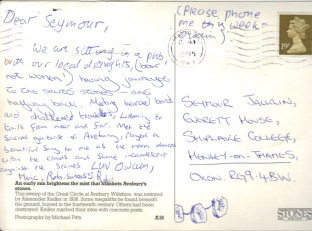 Dear Seymour,
We are sitting in a pub
with our local draughts, (beer
not women!) having journeyed
to the sacred stones and
halfway back. Meeting
and shattered listening to
tales from near and far. Met the
of Avebury. Played a
beautiful song to me as the moon danced
upon the clouds and shone
against the stones LUV
(Please phone
me this week-
SEYMOUR
EVERETT HOUSE,
SHIPLAKE COLLEGE,
HENLEY-ON-THAMES,
OXON RG9 4BW
19p
An early sun brightens the mist that blankets Avebury's
stones.
This sweep of the Great Circle at Avebury, Wiltshire, was restored
by Alexander Keiller in the 1930s. Some megaliths he found beneath
the ground, buried in the fourteenth century. Others had been
destroyed: Keiller marked their sites with concrete posts.
Photography by Michael Pitts
STONES